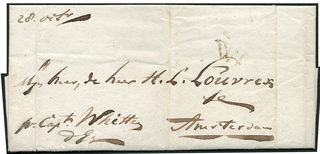 28. octr
Myn heer, de heer H. L. Louvrex
te
pr Capt. Whitte
Amsterdam